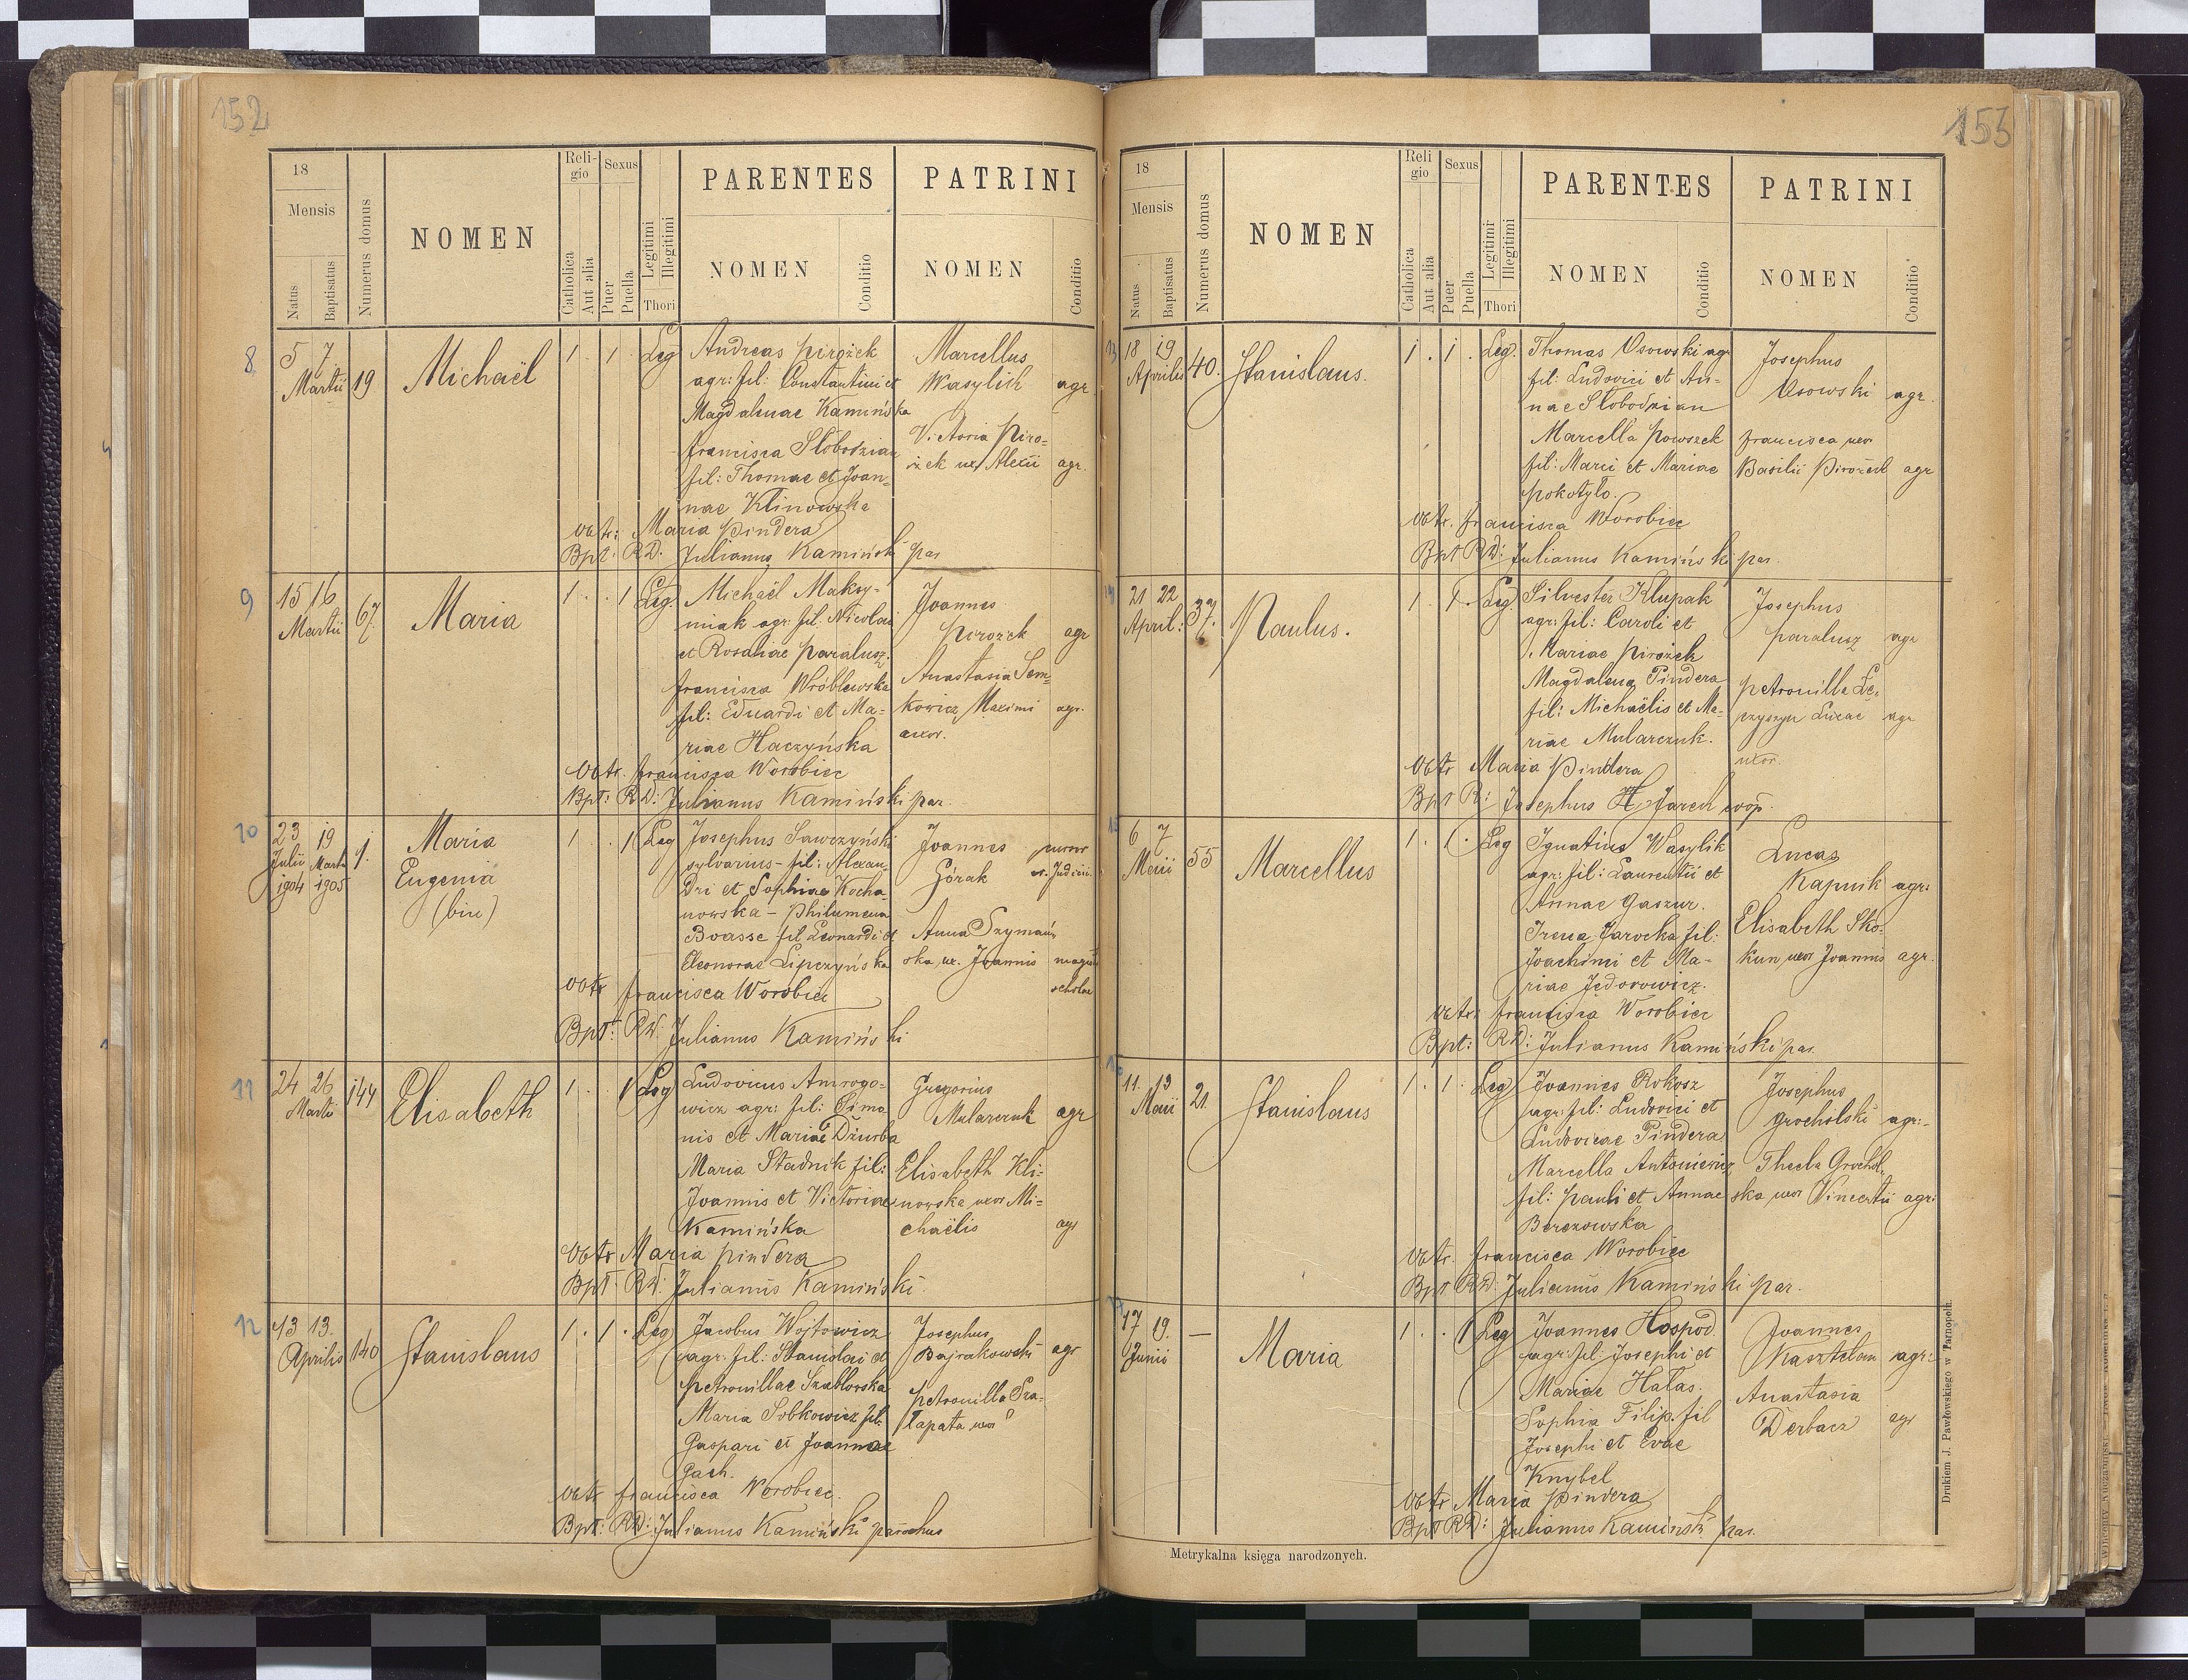 152
18
Mensis
Natus
Baptisatus
Numerus domus
NOMEN
Reli-
gio
Catholica
Aut alia
Sexus
Puer
Puella
Legitimi
Illegitimi
Thori
PARENTES
NOMEN
Conditio
PATRINI
NOMEN
Conditio
8
5 7
Martii
19
Michaël
1 . 1 . Leg
Andreas Pirożek
agr: fil: Constantini et
Magdalenae Kamińska
Francisca Słobodzian
fil: Thomae et Joan-
nae Klinowska
Marcellus
Wasylik agr.
Victoria Piro-
żek ux. Alexii agr.
Obtr: Maria Pindera
Bpt: RD. Julianus Kamiński par
9
15 16
Martii
67.
Maria
1 . . 1 Leg.
Michaël Maksy-
miak agr. fil: Nicolai
et Rosaliae Paralusz.
Francisca Wróblewska
fil: Eduardi et Ma-
riae Haczyńska
Joannes
Pirożek agr
Anastasia Sem-
kowicz Maximi agr.
uxor.
Obtr. Francisca Worobiec
Bpt: RD: Julianus Kamiński par.
10
23 19
Julii Martii
1904 1905
1.
Maria
Eugenia
(bin)
1 . . 1 Leg
Josephus Sawczyński
sylvarius - fil: Alexan-
dri et Sophiae Kocha-
nowska - Philumena
Boasse fil Leonardi et
Eleonorae Lipczyńska
Joannes
Górak
Anna Szymań-
ska, ux. Joannis
scholae
Obtr Francisca Worobiec
Bpt: RD: Julianus Kamiński
11
24 26
Martii
144
Elisabeth
1 . . 1 Leg
Ludovicus Amrogo-
wicz agr: fil: Simo
nis et Mariae Dziurba
Maria Stadnik fil:
Joannis et Victoriae
Kamińska
Gregorius
Mularczuk agr
Elisabeth Kli-
nowska uxor Mi-
chaëlis agr
Obtr Maria Pindera
Bpt. RD: Julianus Kamiński.
12
13 13.
Aprilis
140
Stanislaus
1 . 1 . Leg
Jacobus Wojtowicz
agr. fil: Stanislai et
Petronillae Szablowska
Maria Sobkowicz fil.
Gaspari et Joannae
Gach.
Josephus
Bajrakowski agr
Petronilla Sza-
łapata uxor
Obtr Francisca Worobiec.
Bpt: RD: Julianus Kamiński parochus
153
18
Mensis
Natus
Baptisatus
Numerus domus
NOMEN
Reli
gio
Catholica
Aut alia
Sexus
Puer
Puella
Legitimi
Illegitimi
Thori
PARENTES
NOMEN
Conditio
PATRINI
NOMEN
Conditio
13
18 19
Aprilis
40.
Stanislaus.
1 . 1 . Leg.
Thomas Osowski agr
fil: Ludovici et An-
nae Słobodzian
Marcella Powszek
fil: Marci et Mariae
Pokotyło.
Josephus
Osowski agr.
Francisca uxor
Basilii Pirożek agr
Obtr. Francisca Worobiec
Bpt RD: Julianus Kamiński par.
14
21 22
April:
37.
Paulus.
1 . 1 . Leg
Silvester Klupak
agr: fil: Caroli et
Mariae Pirożek
Magdalena Pindera
fil: Michaëlis et Ma-
riae Mularczuk.
Josephus
Paralusz agr
Petronilla
Lucae agr
uxor.
Obtr Maria Pindera
Bpt R: Josephus H. Jarek coop.
15
6 7
Maii
55
Marcellus
1 . 1 . Leg
Ignatius Wasylik
agr: fil: Laurentii et
Annae Gaszur.
Irena Jarocka fil:
Joachimi et Ma-
riae Fedorowicz.
Lucas
Kapnik agr:
Elisabeth Sko-
kun, uxor Joannis agr.
Obtr: Francisca Worobiec
Bpt: RD: Julianus Kamiński par.
16
11. 13
Maii
21.
Stanislaus
1 . 1 . Leg
Joannes Rokosz
agr: fil: Ludovici et
Ludovicae Pindera
Marcella Antoniewicz
fil: Pauli et Annae
Berezowska
Josephus
Grocholski agr:
Thecla Grochol-
ska, uxor Vincentii agr:
Obtr. Francisca Worobiec
Bpt RD: Julianus Kamiński par.
17
17 19.
Junii
—
Maria
1 . . 1 Leg
Joannes Hospod.
agr: fil: Josephi et
Mariae Hałas.
Sophia Filip. fil
Josephi et Evae
Knybel
Joannes
Kasztelan agr:
Anastasia
Derbacz agr
Obtr Maria Pindera
Bpt RD: Julianus Kamiński par.
Metrykalna księga narodzonych.
Drukiem J. Pawłowskiego w Tarnopolu.